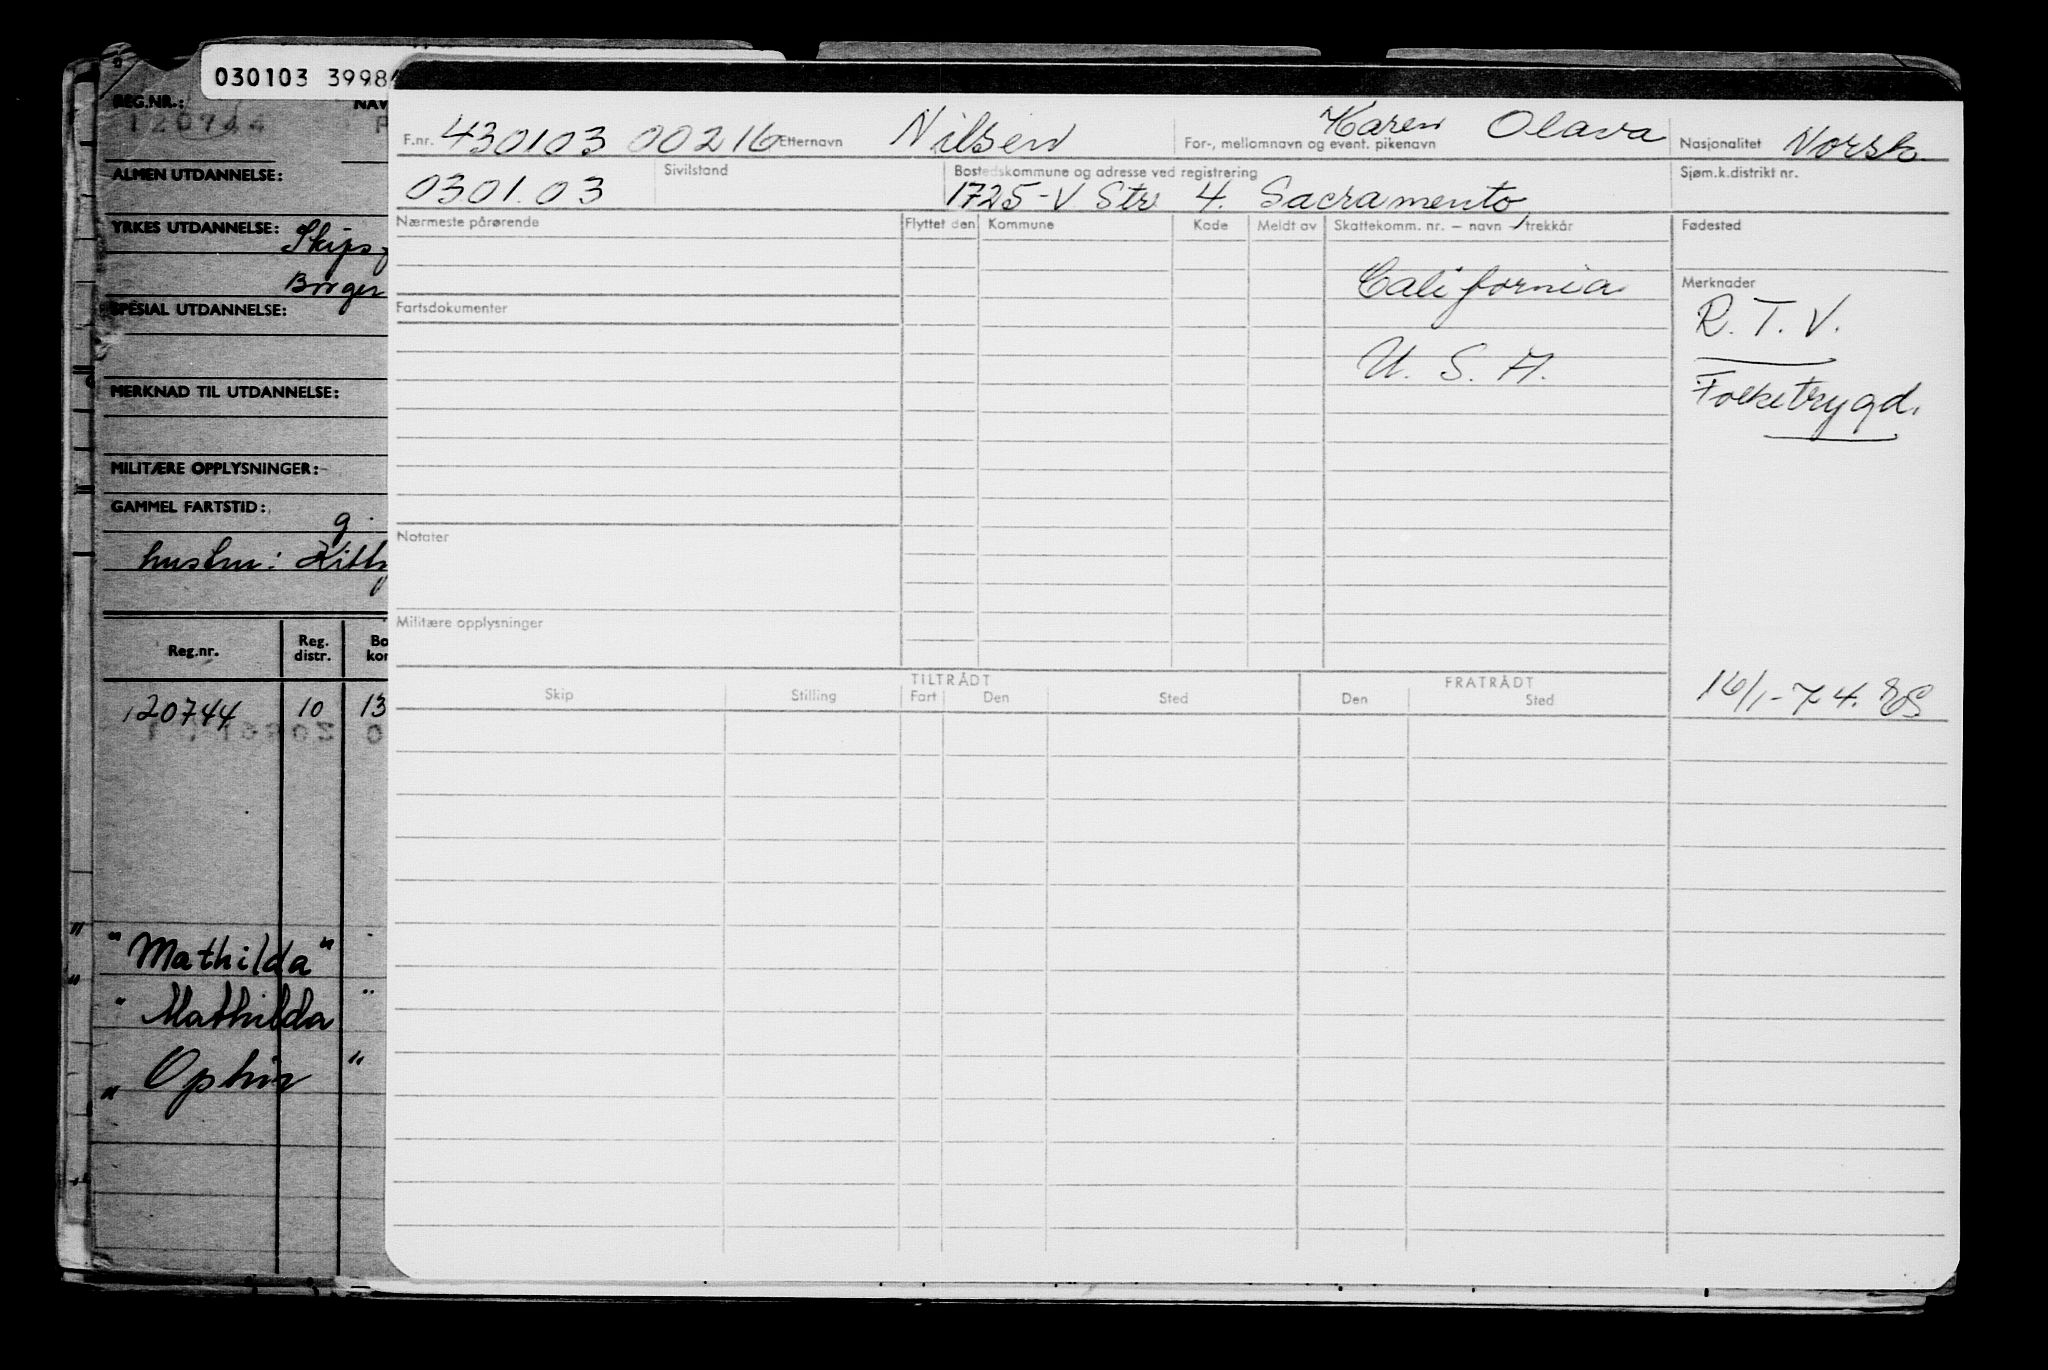 030103 3998
REG.NR.:
NAV
120744
ALMEN UTDANNELSE:
YRKES UTDANNELSE: Skips
Borger
SPESIAL UTDANNELSE:
MERKNAD TIL UTDANNELSE:
MILITÆRE OPPLYSNINGER:
GAMMEL FARTSTID:
g.
hustru: Kitty
Reg.nr.
Reg. distr.
Bo kor
120744 10 13
"Mathilda"
"Mathilda"
"Ophir"
F.nr. 430103 00216 Etternavn Nilsen For-, mellomnavn og event. pikenavn Karen Olava Nasjonalitet Norsk.
030103 Sivilstand Bostedskommune og adresse ved registrering 1725-V Str 4. Sacramento, Sjøm.k.distrikt nr.
Nærmeste pårørende Flyttet den Kommune Kode Meldt av Skattekomm. nr. – navn – trekkår Fødested
California
Merknader
R.T.V.
Fartsdokumenter
U.S.A.
Folketrygd.
Notater
Militære opplysninger
16/1-74. ES
TILTRÅDT FRATRÅDT
Skip Stilling Fart Den Sted Den Sted